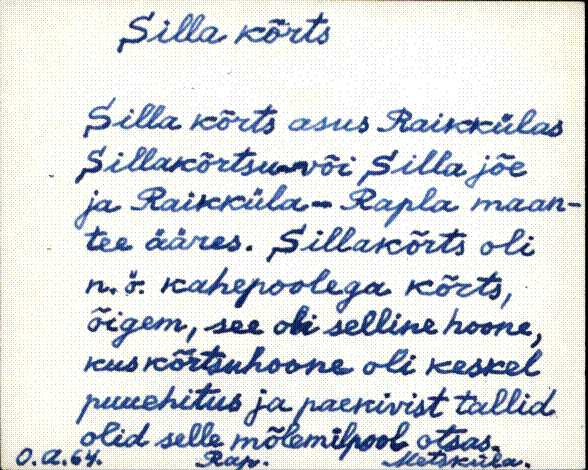 Silla kõrts
Silla kõrts asus Raikkülas
Sillakõrtsu- või Silla jõe
ja Raikküla - Rapla maan-
tee ääres. Sillakõrts oli
n.ö. kahepoolega kõrts,
õigem, see oli selline hoone,
kus kõrtsuhoone oli keskel
puuehitus ja paekivist tallid
olid selle mõlemilpool otsas.
O.A.64. Rap. Metsküla.